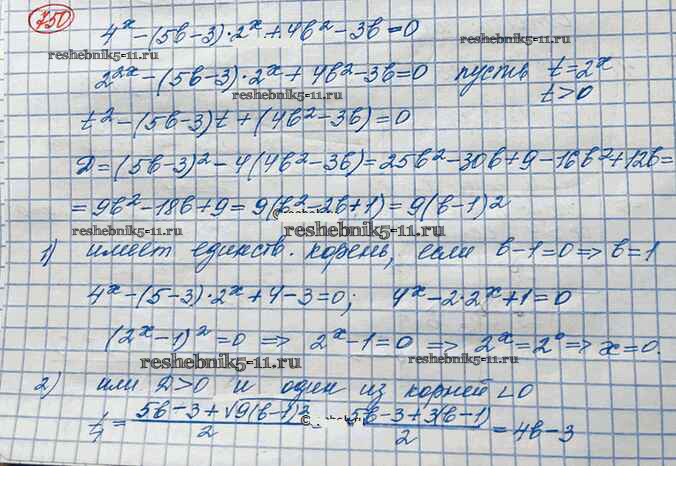 750
4^x-(5b-3)·2^x+4b²-3b=0
reshebnik5-11.ru reshebnik5-11.ru
2^2x-(5b-3)·2^x+4b²-3b=0 пусть t=2^x
reshebnik5-11.ru t>0
t²-(5b-3)t+(4b²-3b)=0
D=(5b-3)²-4(4b²-3b)=25b²-30b+9-16b²+12b=
=9b²-18b+9=9(b²-2b+1)=9(b-1)²
reshebnik5-11.ru reshebnik5-11.ru
1) имеет единств. корень, если b-1=0⇒b=1
4^x-(5-3)·2^x+4-3=0; 4^x-2·2^x+1=0
(2^x-1)²=0 ⇒ 2^x-1=0 ⇒ 2^x=2^0⇒x=0.
reshebnik5-11.ru reshebnik5-11.ru
2) или D>0 и один из корней <0
t₁=(5b-3+√9(b-1)²)/2 = (5b-3+3(b-1))/2=4b-3
reshebnik5-11.ru